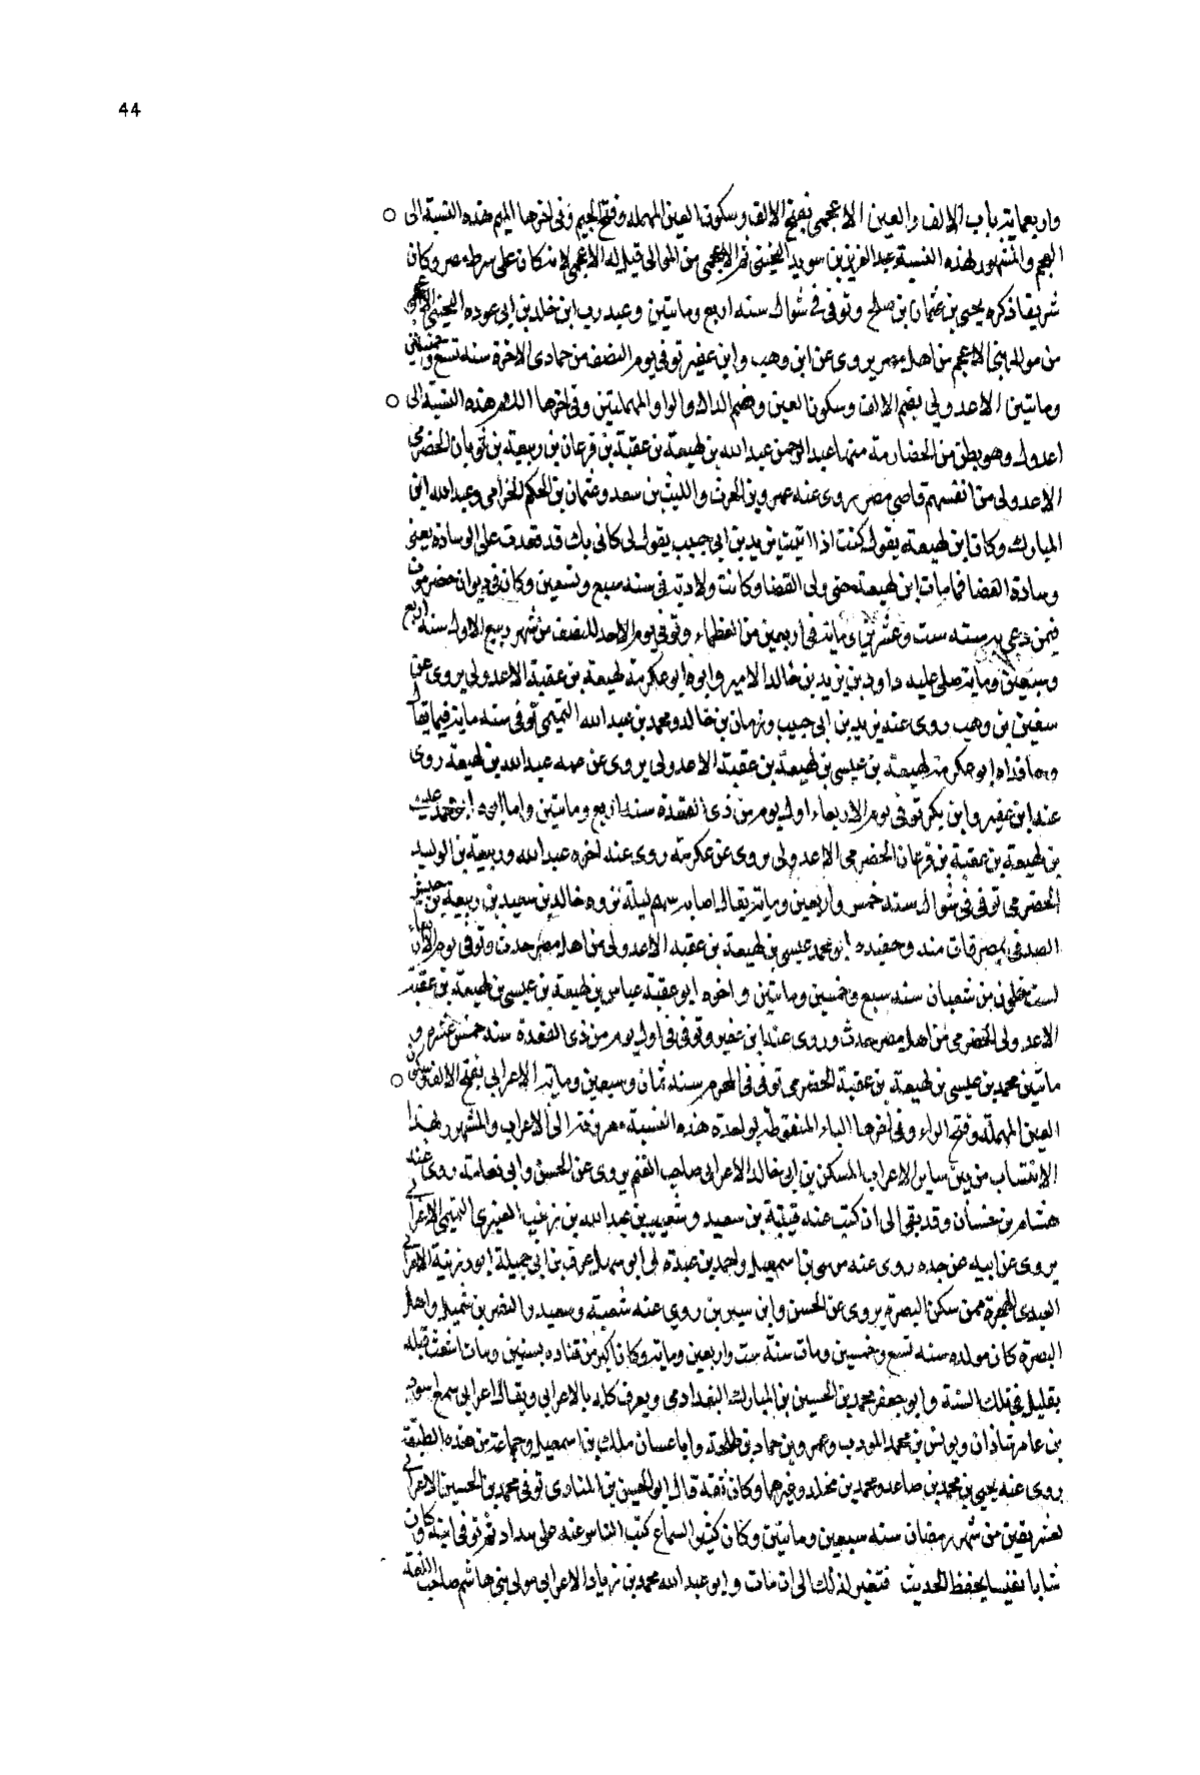 44
واربعماية باب الالف والعين الاعجمي بفتح الالف وسكون العين المهملة وفتح الجيم وفي اخرها الميم هذه النسبة الى
العجم والمشهور بهذه النسبة عبد العزيز بن سويد ثم الاعجمي من الموالي قيل له الاعجمي لانه كان على شرطه مصر وكان
شريفا ذكره يحيى بن عثمان بن صلح وتوفي في شوال سنه اربع ومايتين وعبد رب ابن خلد بن ابي عوده
من موالي بني الاعجم من اهل مصر يروى عن ابن وهب وابن عفير توفي يوم النصف من جمادى الاخرة سنه تسع وخمسين
ومايتين الاعدولي بضم الالف وسكون العين وضم الدال والواو المهملتين وفي اخرها اللام هذه النسبة الى
اعدول وهو بطن من الحضارمة منها عبد الرحمن عبد الله بن لهيعة بن عقبة بن فرعان بن ربيعة بن ثوبان الحضرمي
الاعدولي من انفسهم قاضي مصر يروى عنه عمرو بن الحرث والليث بن سعد وعثمان بن الحكم الحزامي وعبد الله ابن
المبارك وكان ابن لهيعة يقول كنت اذا اتيت يزيد بن ابي حبيب يقول لي كاني بك قد قعدت على الوسادة يعني
وسادة القضا فما مات ابن لهيعة حتى ولى القضا وكانت ولادته في سنه سبع وتسعين وكان في ديوان حضرموت
فيمن دعي به سنه ست وعشرين وماية في اربعين من العظماء وتوفي يوم الاحد للنصف من شهر ربيع الاول سنه اربع
وسبعين وماية صلى عليه داود بن يزيد بن خالد الامير وابوه ابو عكرمة لهيعة بن عقبة الاعدولي يروى عن
سفين بن وهب روى عنه يزيد بن ابي حبيب وزبان بن خالد ومحمد بن عبد الله التميمي توفي سنه ماية فيما يقال
وحافداه ابو عكرمة لهيعة بن عيسى بن لهيعة بن عقبة الاعدولي يروى عن عمه عبد الله بن لهيعة روى
عنه ابن عفير وابن بكير توفي يوم الاربعاء اول يوم من ذي القعدة سنه اربع ومايتين واما اخوه ابو محمد عيسى
بن لهيعة بن عقبة بن فرعان الحضرمي الاعدولي يروى عن عكرمة روى عنه اخوه عبد الله وربيعة بن الوليد
الحضرمي توفي في شوال سنه خمس واربعين وماية يقال اصابه سهم ليلة غزوه خالد بن سعيد بن ربيعة بن حبيش
الصدفي بمصر فمات منه وحفيده ابو محمد عيسى بن لهيعة بن عقبه الاعدولي من اهل مصر حدث وتوفي يوم الاربعاء
لست خلون من شعبان سنه سبع وخمسين ومايتين واخوه ابو عقبة عباس بن لهيعة بن عيسى بن لهيعة بن عقبة
الاعدولي الحضرمي من اهل مصر حدث وروى عنه ابن عفير وتوفي في اول يوم من ذي القعدة سنه خمس عشرة و
مايتين محمد بن عيسى بن لهيعة بن عقبة الحضرمي توفي في المحرم سنه ثمان وسبعين وماية الاعرابي بفتح الالف وسكون
العين المهملة وفتح الراء وفي اخرها الباء المنقوطة بواحده هذه النسبة معروفة الى الاعراب والمشهور بهذا
الانتساب من بين ساير الاعراب المسكن بن ابي خالد الاعرابي صاحب الغنم يروى عن الحسن وابي نعامة روى عنه
هشام بن غسان وقد بقي الى ان كتب عنه قتيبة بن سعيد وشعيب بن عبد الله بن زغيب العنبري التميمي الاعرابي
يروى عن ابيه عن جده روى عنه موسى بن اسمعيل واحمد بن عبدة لي ابو سهل عوف بن ابي جميلة ابو رزينة الاعرابي
العبدي الهجري ممن سكن البصرة يروى عن الحسن وابن سيرين روي عنه شعبة وسعيد والنضر بن شميل واهل
البصرة كان مولده سنه تسع وخمسين ومات سنة ست واربعين وماية وكان اكبر من قتاده بسنتين ومات اشعث قبله
بقليل في تلك السنة وابو جعفر محمد بن الحسين بن المبارك البغدادي ويعرف كله بالاعرابي ويقال اعرابي سمع اسود
بن عامر شاذان ويونس بن محمد المودب وعمرو بن حماد بن طلحة وابا غسان ملك بن اسمعيل وجماعة من هذه الطبقة
روى عنه يحيى بن محمد بن صاعد ومحمد بن مخلد وغيرهما وكان ثقة قال ابو الحسين بن المنادى توفي محمد بن الحسين الاعرابي
لعشر بقين من شهر رمضان سنه سبعين ومايتين وكان كثير السماع كتب الناس عنه على سداد ثم توفي ابنه وكان
شابا نفيسا يحفظ الحديث فتغير لذلك الى ان مات وابو عبد الله محمد بن زياد الاعرابي مولى بني هاشم صاحب اللغة